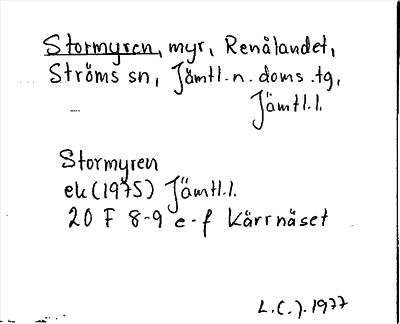 Stormyren, myr, Renålandet,
Ströms sn, Jämtl.n.doms.tg,
Jämtl.l.
Stormyren
ek (1975) Jämtl.l.
20 F 8-9 e-f Kärrnäset
L.C.J. 1977